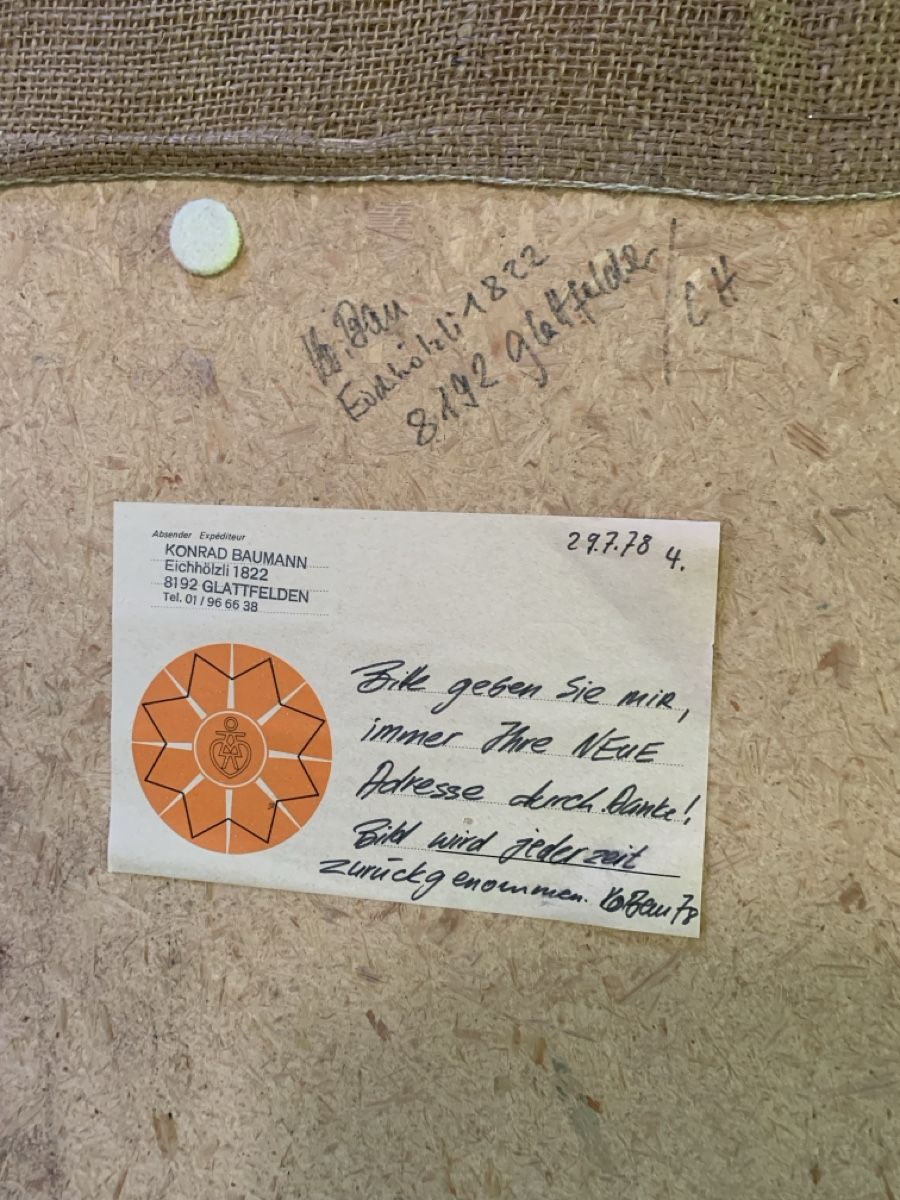 Ko.Bau
Eichhölzli 1822
8192 Glattfelden
CH
Absender Expéditeur
KONRAD BAUMANN
Eichhölzli 1822
8192 GLATTFELDEN
Tel. 01/96 66 38
29.7.78 4.
Bitte geben Sie mir,
immer Ihre NEUE
Adresse durch. Danke!
Bild wird jederzeit
zurückgenommen. KoBau 78